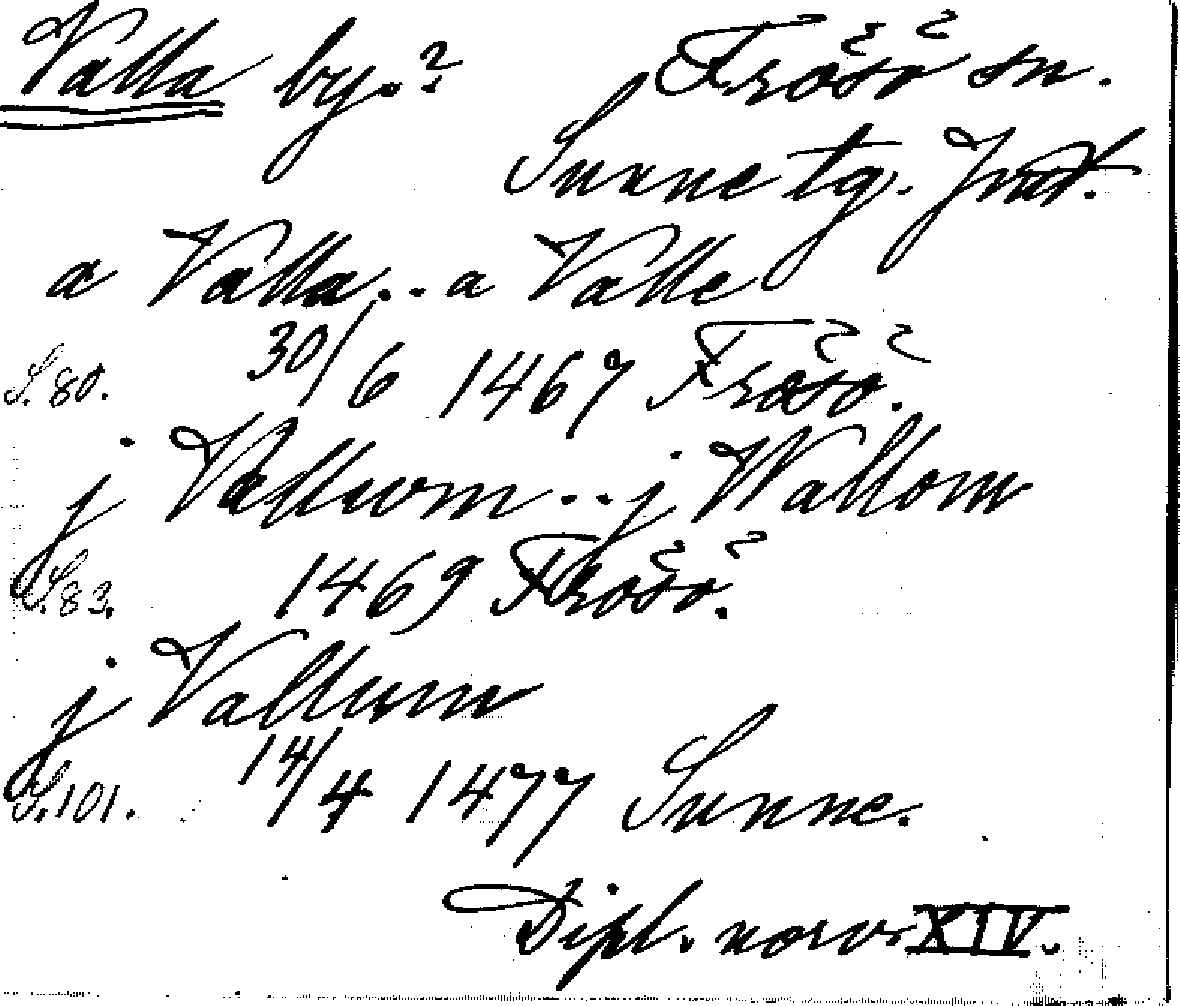 Valla by.? Frösö sn.
Sunne tg. Jmt.
a Valla..a Valle
S. 80. 30/6 1467 Frösö.
j Vallwm..j Wallom
S. 83. 1469 Frösö.
j Vallum
S. 101. 14/4 1477 Sunne.
Dipl. norv. XIV.